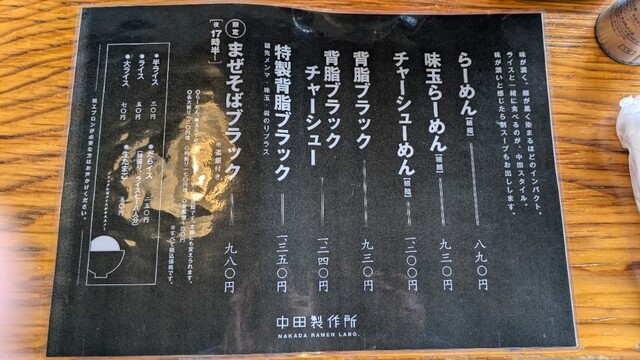 味が濃く、麺が黒く染まるほどのインパクト。
ライスと一緒に食べるのが、中田スタイル。
味が濃いと感じたら“割スープもお出しします。
らーめん[細麺] 八九〇円
味玉らーめん[細麺] 九三〇円
チャーシューめん[細麺] 一二〇〇円
背脂ブラック 九三〇円
背脂ブラック
チャーシュー 一二四〇円
特製背脂ブラック 一三五〇円
穂先メンマ・味玉・岩のりプラス
限定 まぜそばブラック 九八〇円
[夜 17時半〜]
※追飯付き
●半ライス 三〇円
●ライス 五〇円
●大ライス 七〇円
紙エプロンが必要な方はお声がけください。
中田製作所
NAKADA RAMEN LABO.